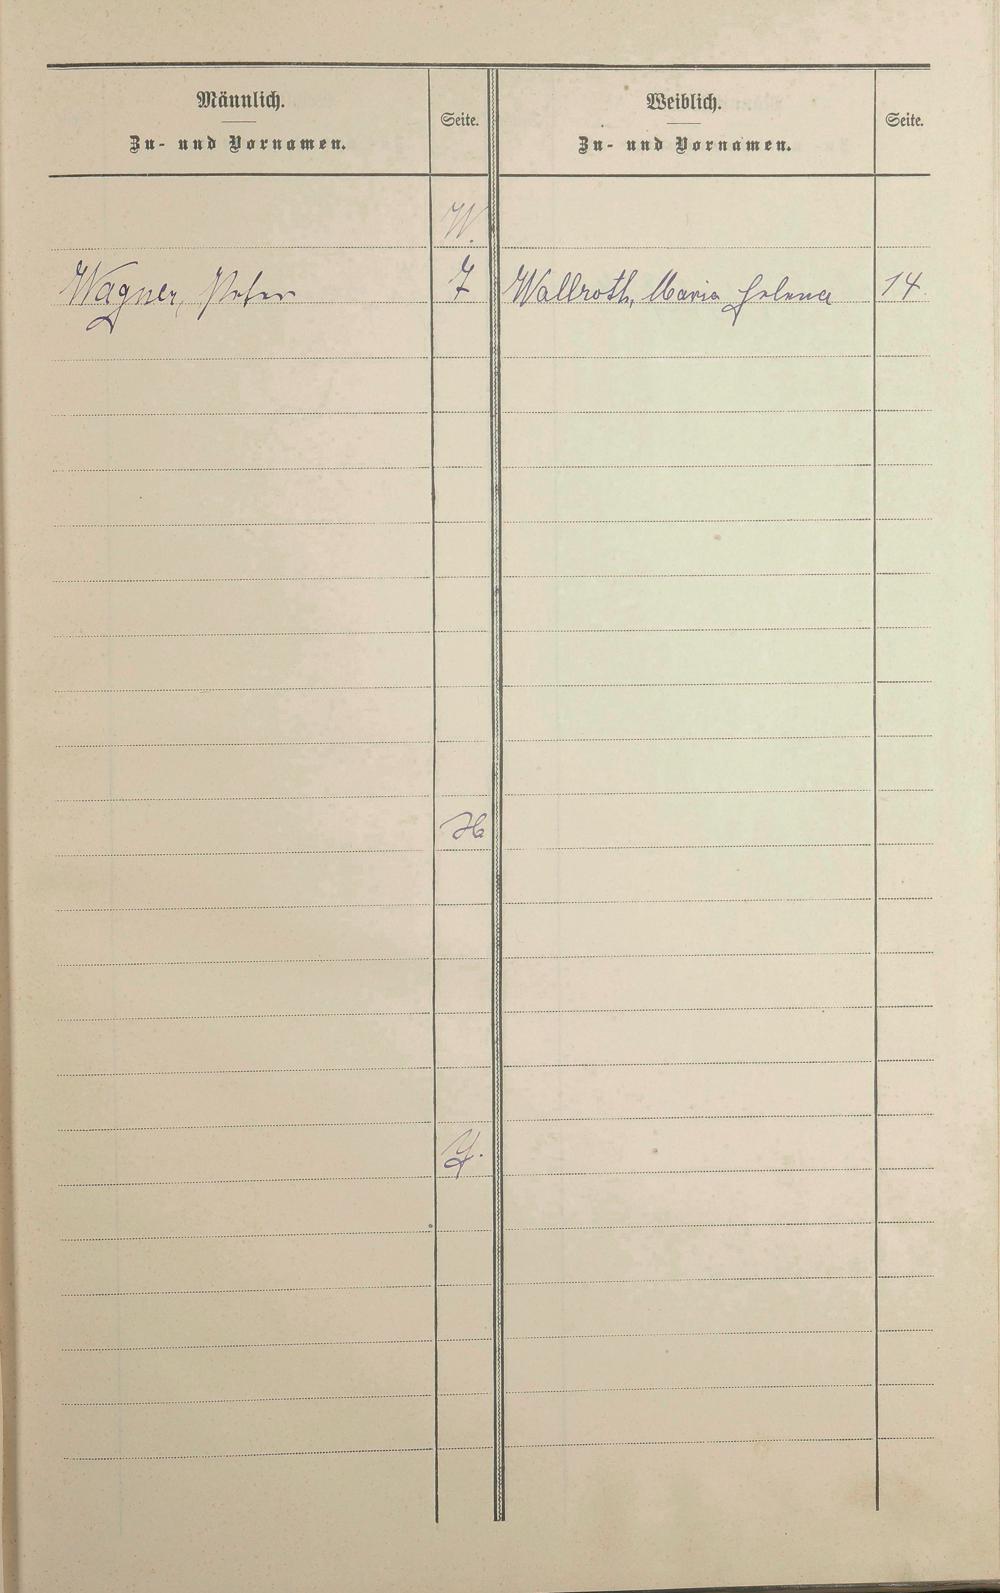 Männlich.
Zu- und Vornamen.
Seite.
Weiblich.
Zu- und Vornamen.
Seite.
W.
Wagner, Peter
7
Wallroth, Maria Helena
14.
X
Y.